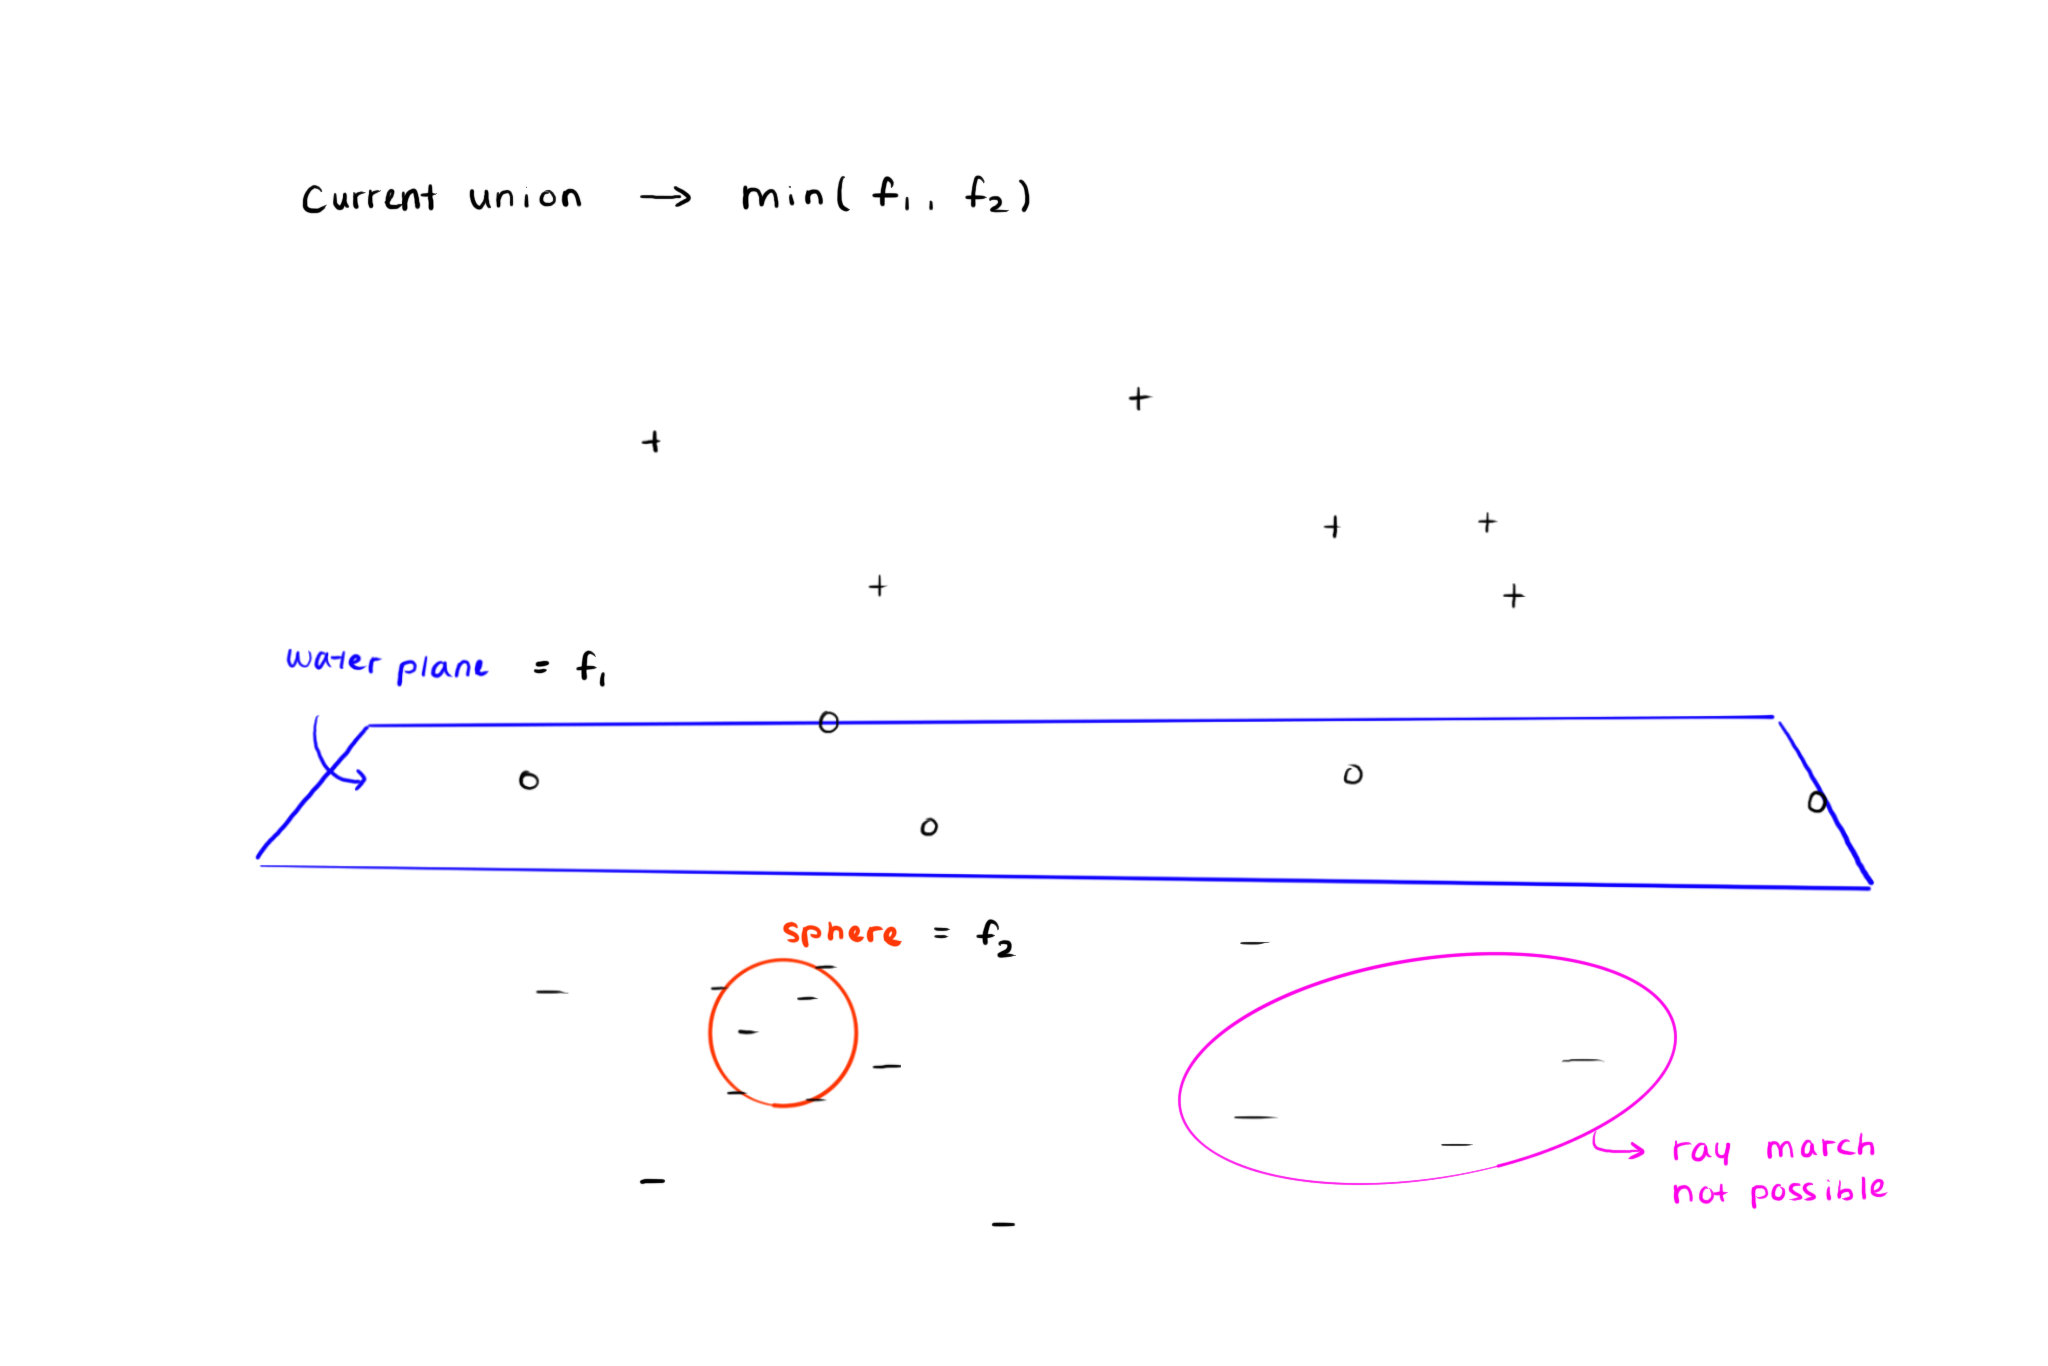 Current union → min( f₁, f₂)
+
+
+ +
+ +
water plane = f₁
o
o o
o o
sphere = f₂
−
− − − −
−
− −
− − − −
ray march
not possible
−
−